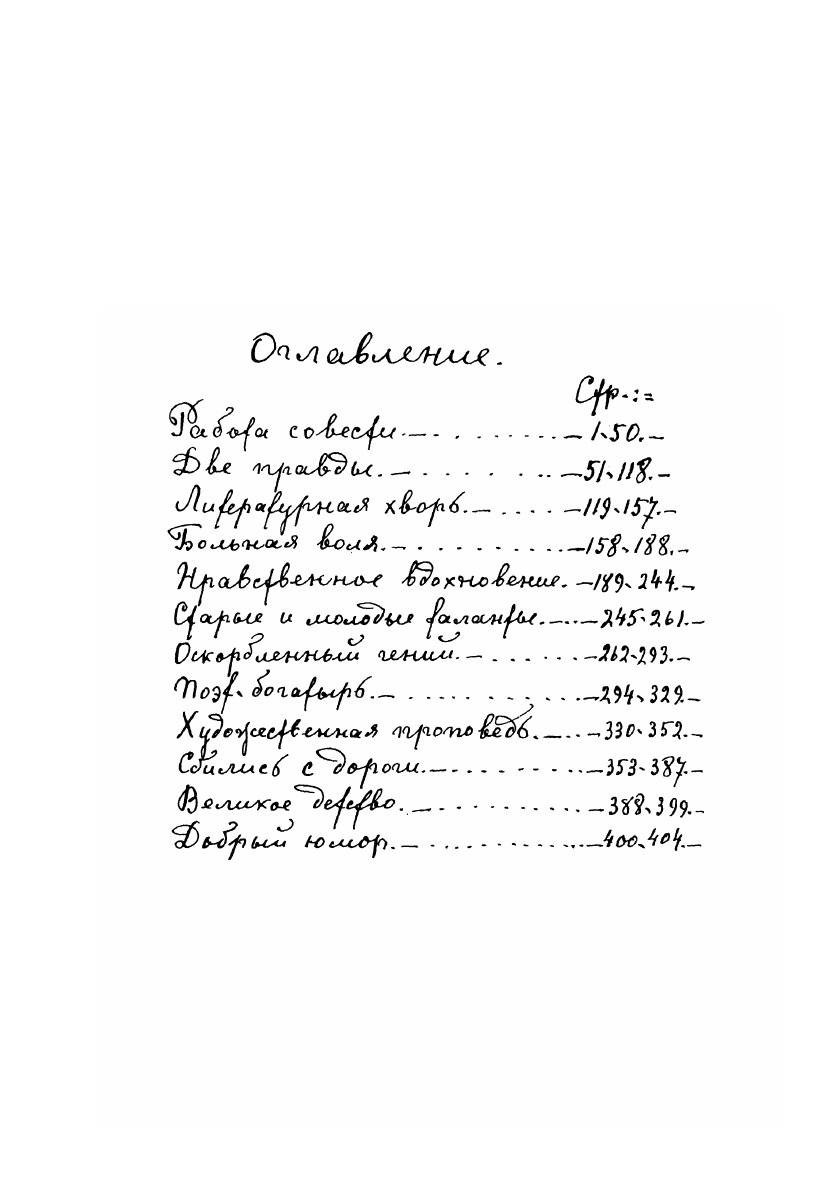 Оглавление.
Стр.:=
Работа совести.— . . . . . . . . . —1-50.—
Две правды.— . . . . . . . —51-118.—
Литературная хворь.— . . . . —119-157.—
Больная воля.— . . . . . . . . . . —158-188.—
Нравственное вдохновение. —189-244.—
Старые и молодые фаланты.—..—245-261.—
Оскорбленный гений.— . . . . . . —262-293.—
Поэт-богатырь.— . . . . . . . . . . —294-329.—
Художественная проповедь.—..—330-352.—
Сбились с дороги.— . . . . . . . . —353-387.—
Великое детство.— . . . . . . . . . . —388-399.—
Добрый юмор.— . . . . . . . . . . . . —400-404.—